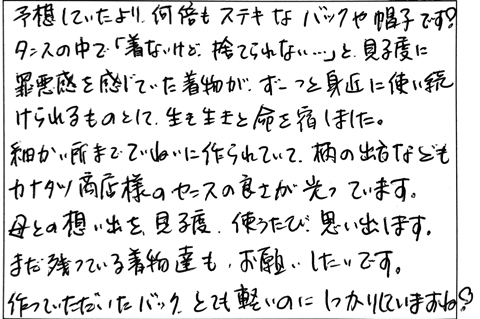 予想していたより、何倍もステキなバックや帽子です!
タンスの中で「着ないけど、捨てられない…」と、見る度に
罪悪感を感じていた着物が、ずーっと身近に使い続
けられるものとして、生き生きと命を宿しました。
細かい所までていねいに作られていて、柄の出方なども
カナタツ商店様のセンスの良さが光っています。
母との想い出を、見る度、使うたび、思い出します。
まだ残っている着物達も、お願いしたいです。
作っていただいたバック、とても軽いのにしっかりしていますね!